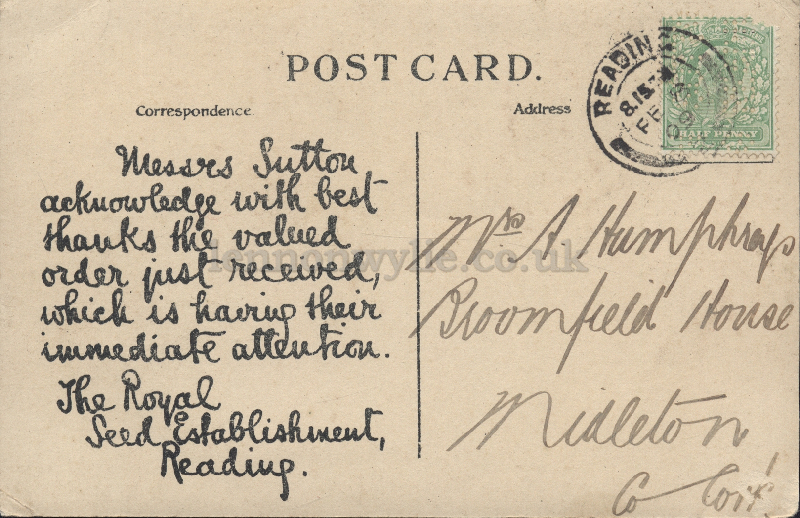 POST CARD.
Correspondence
Address
READING
8.15 PM
FE
09
HALF PENNY
Messrs Sutton
acknowledge with best
thanks the valued
order just received,
which is having their
immediate attention.
The Royal
Seed Establishment,
Reading.
Mrs A Humphrays
Broomfield House
Midleton
Co Cork
lennonwylie.co.uk